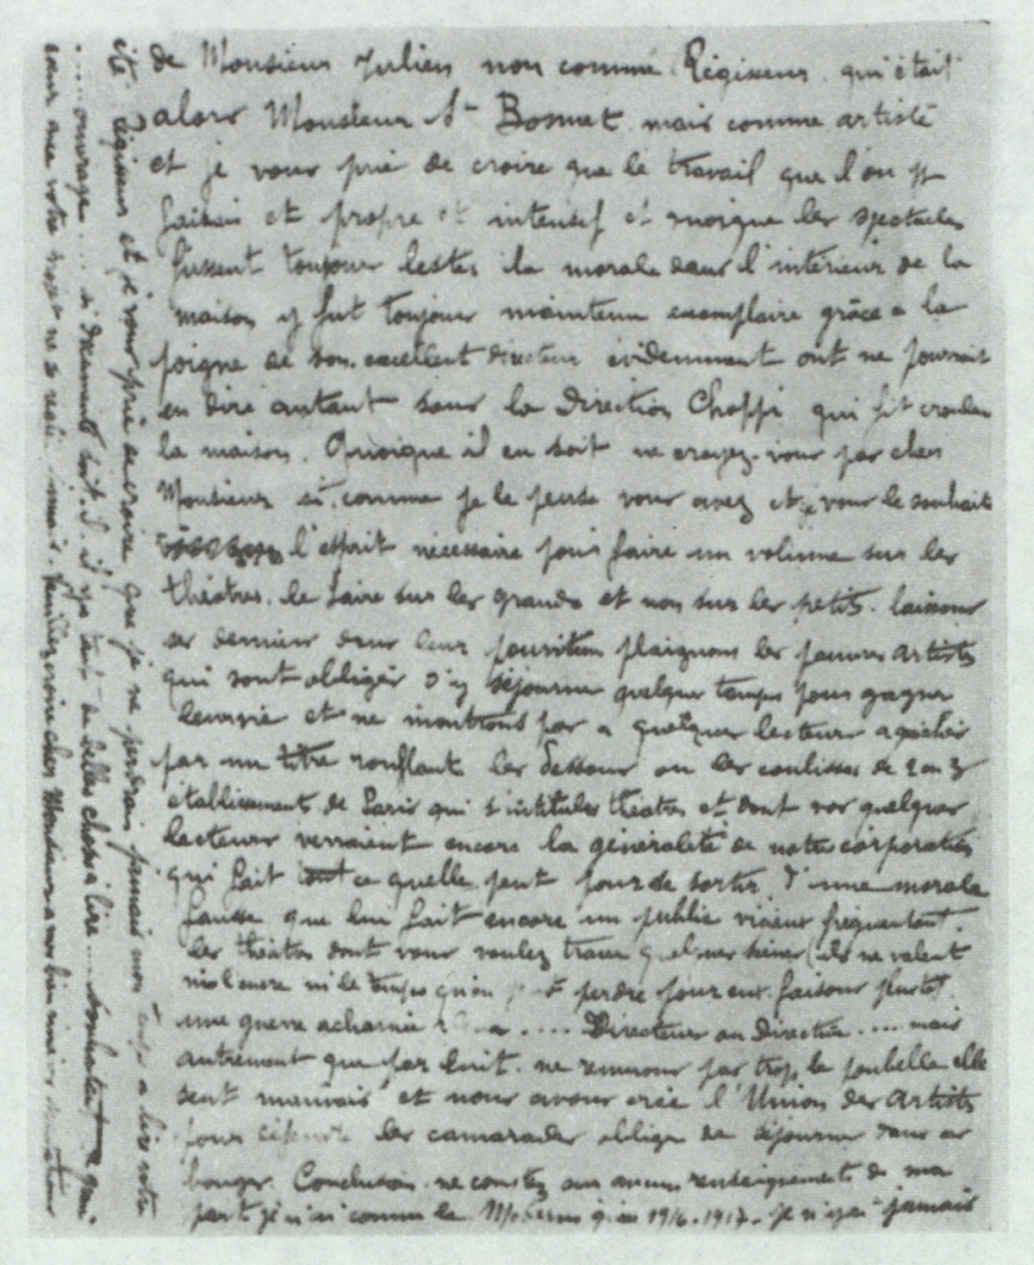 de Monsieur Julien non comme Régisseur qui était
alors Monsieur St Bonnet mais comme artiste
et je vous prie de croire que le travail que l'on y
faisais et propre et intensif et quoique les spectacles
fussent toujours lestes la morale dans l'interieur de la
maison y fut toujours maintenu exemplaire grâce a la
poigne de son excellent directeur évidemment ont ne pourrait
en dire autant sous la direction Choppi qui fit crouler
la maison. Quoique il en soit ne croyez-vous pas cher
Monsieur si comme je le pense vous avez et je vous le souhaite
l'esprit nécessaire pour faire un volume sur les
théâtres. le faire sur les grands et non sur les petits. laissons
ces derniers dans leur pourriture plaignons les pauvres artistes
qui sont obligés d'y séjourner quelque temps pour gagner
leur vie et ne montrons pas a quelques lecteurs
par un titre ronflant les dessous ou les coulisses de 2 ou 3
établissements de Paris qui s'intitules théâtres et dont vos quelques
lecteurs verraient encore la généralité de notre corporation
qui fait tout ce quelle peut pour de sortir d'une morale
fausse que lui fait encore un public vicieux fréquentant
les théâtres dont vous voulez tracer quelques scènes (ils ne valent
ni l'encre ni le temps qu'on perdre pour eux. faisons plutot
une guerre acharnée .... Directeur ou Directrice .... mais
autrement que par écrit. ne remuons pas trop la poubelle elle
sent mauvais et nous avons crée l'Union des Artistes
pour défendre les camarades obligé de séjourner dans ce
bouges. Conclusion ne comptez sur aucuns renseignements de ma
part je n'ai connu le Moderne qu'en 1916-1917. je n'y ai jamais
été régisseur et je vous prie de croire que je ne perdrais jamais mon temps a lire votre
..... ouvrage .... si dreument soit-il. il y a tant de belles choses a lire .... Souhaitant que
votre projet ne se réalise jamais. Veuillez croire cher Monsieur a mes bien